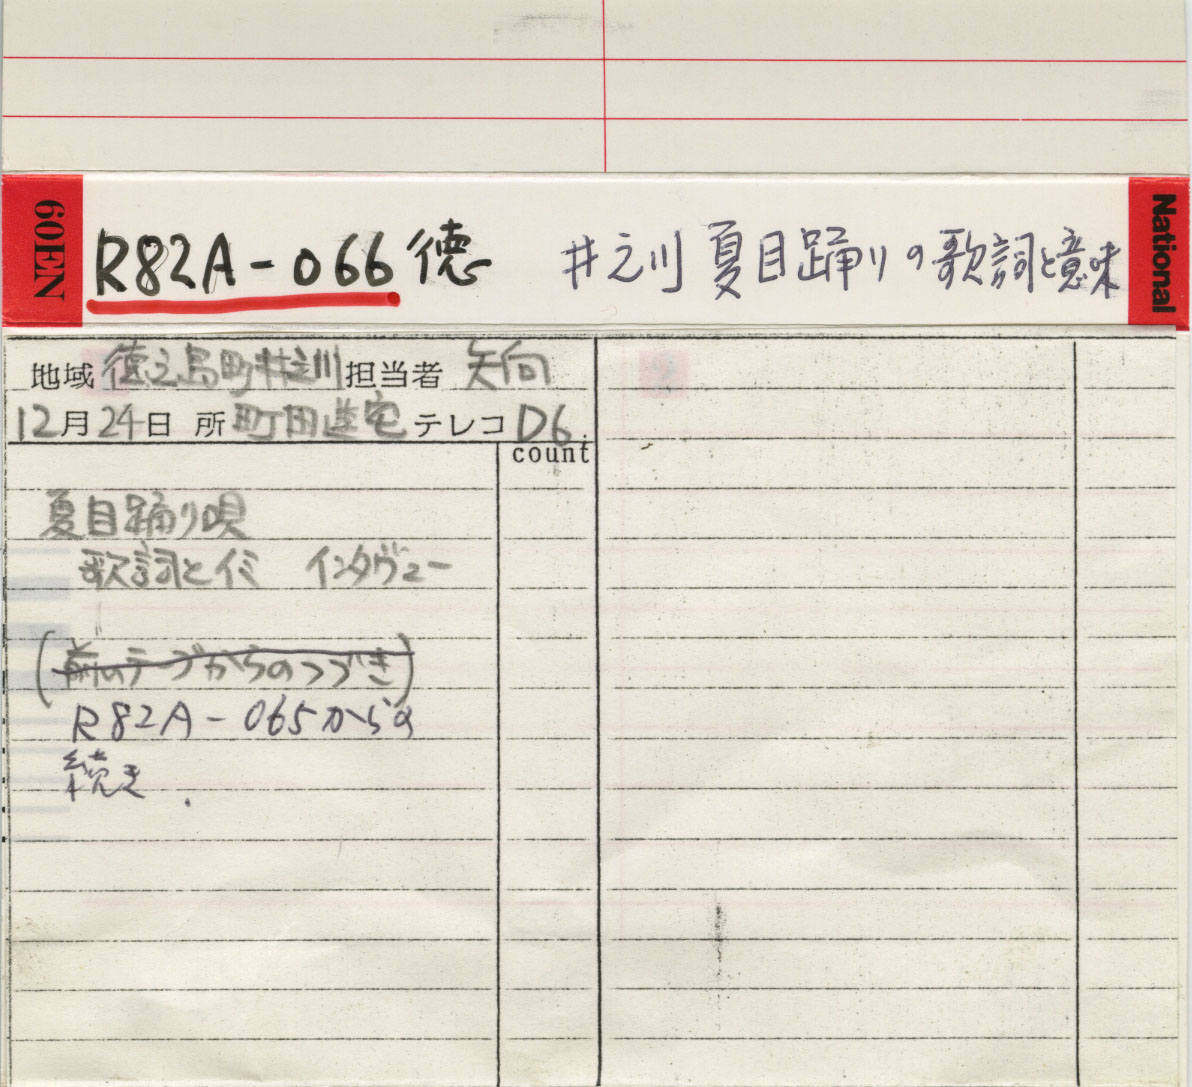 60EN R82A-066 徳 井之川 夏目踊りの歌詞と意味 National
地域 徳之島町井之川 担当者 矢向
12月24日 所 町田進宅 テレコ D6
count
夏目踊り唄
歌詞とイミ インタヴュー
(前のテープからのつづき)
R82A-065からの
続き.